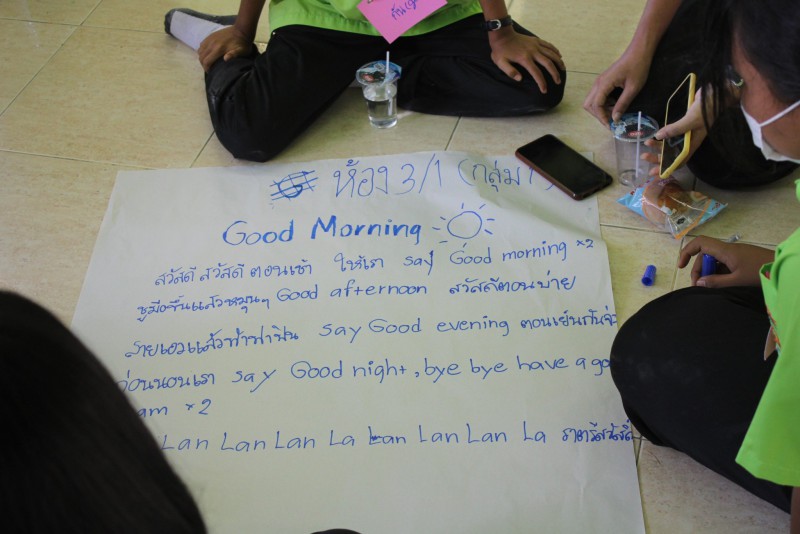 ห้อง 3/1 (กลุ่ม 1
Good Morning
สวัสดี สวัสดี ตอนเช้า ให้เรา say Good morning ×2
ชูมือขึ้นแล้วหมุนๆ Good afternoon สวัสดีตอนบ่าย
ส่ายเอวแล้ว say Good evening ตอนเย็น
ก่อนนอนเรา say Good night, bye bye have a go
am ×2
Lan Lan Lan La Lan Lan Lan La ราตรีสวัสดิ์